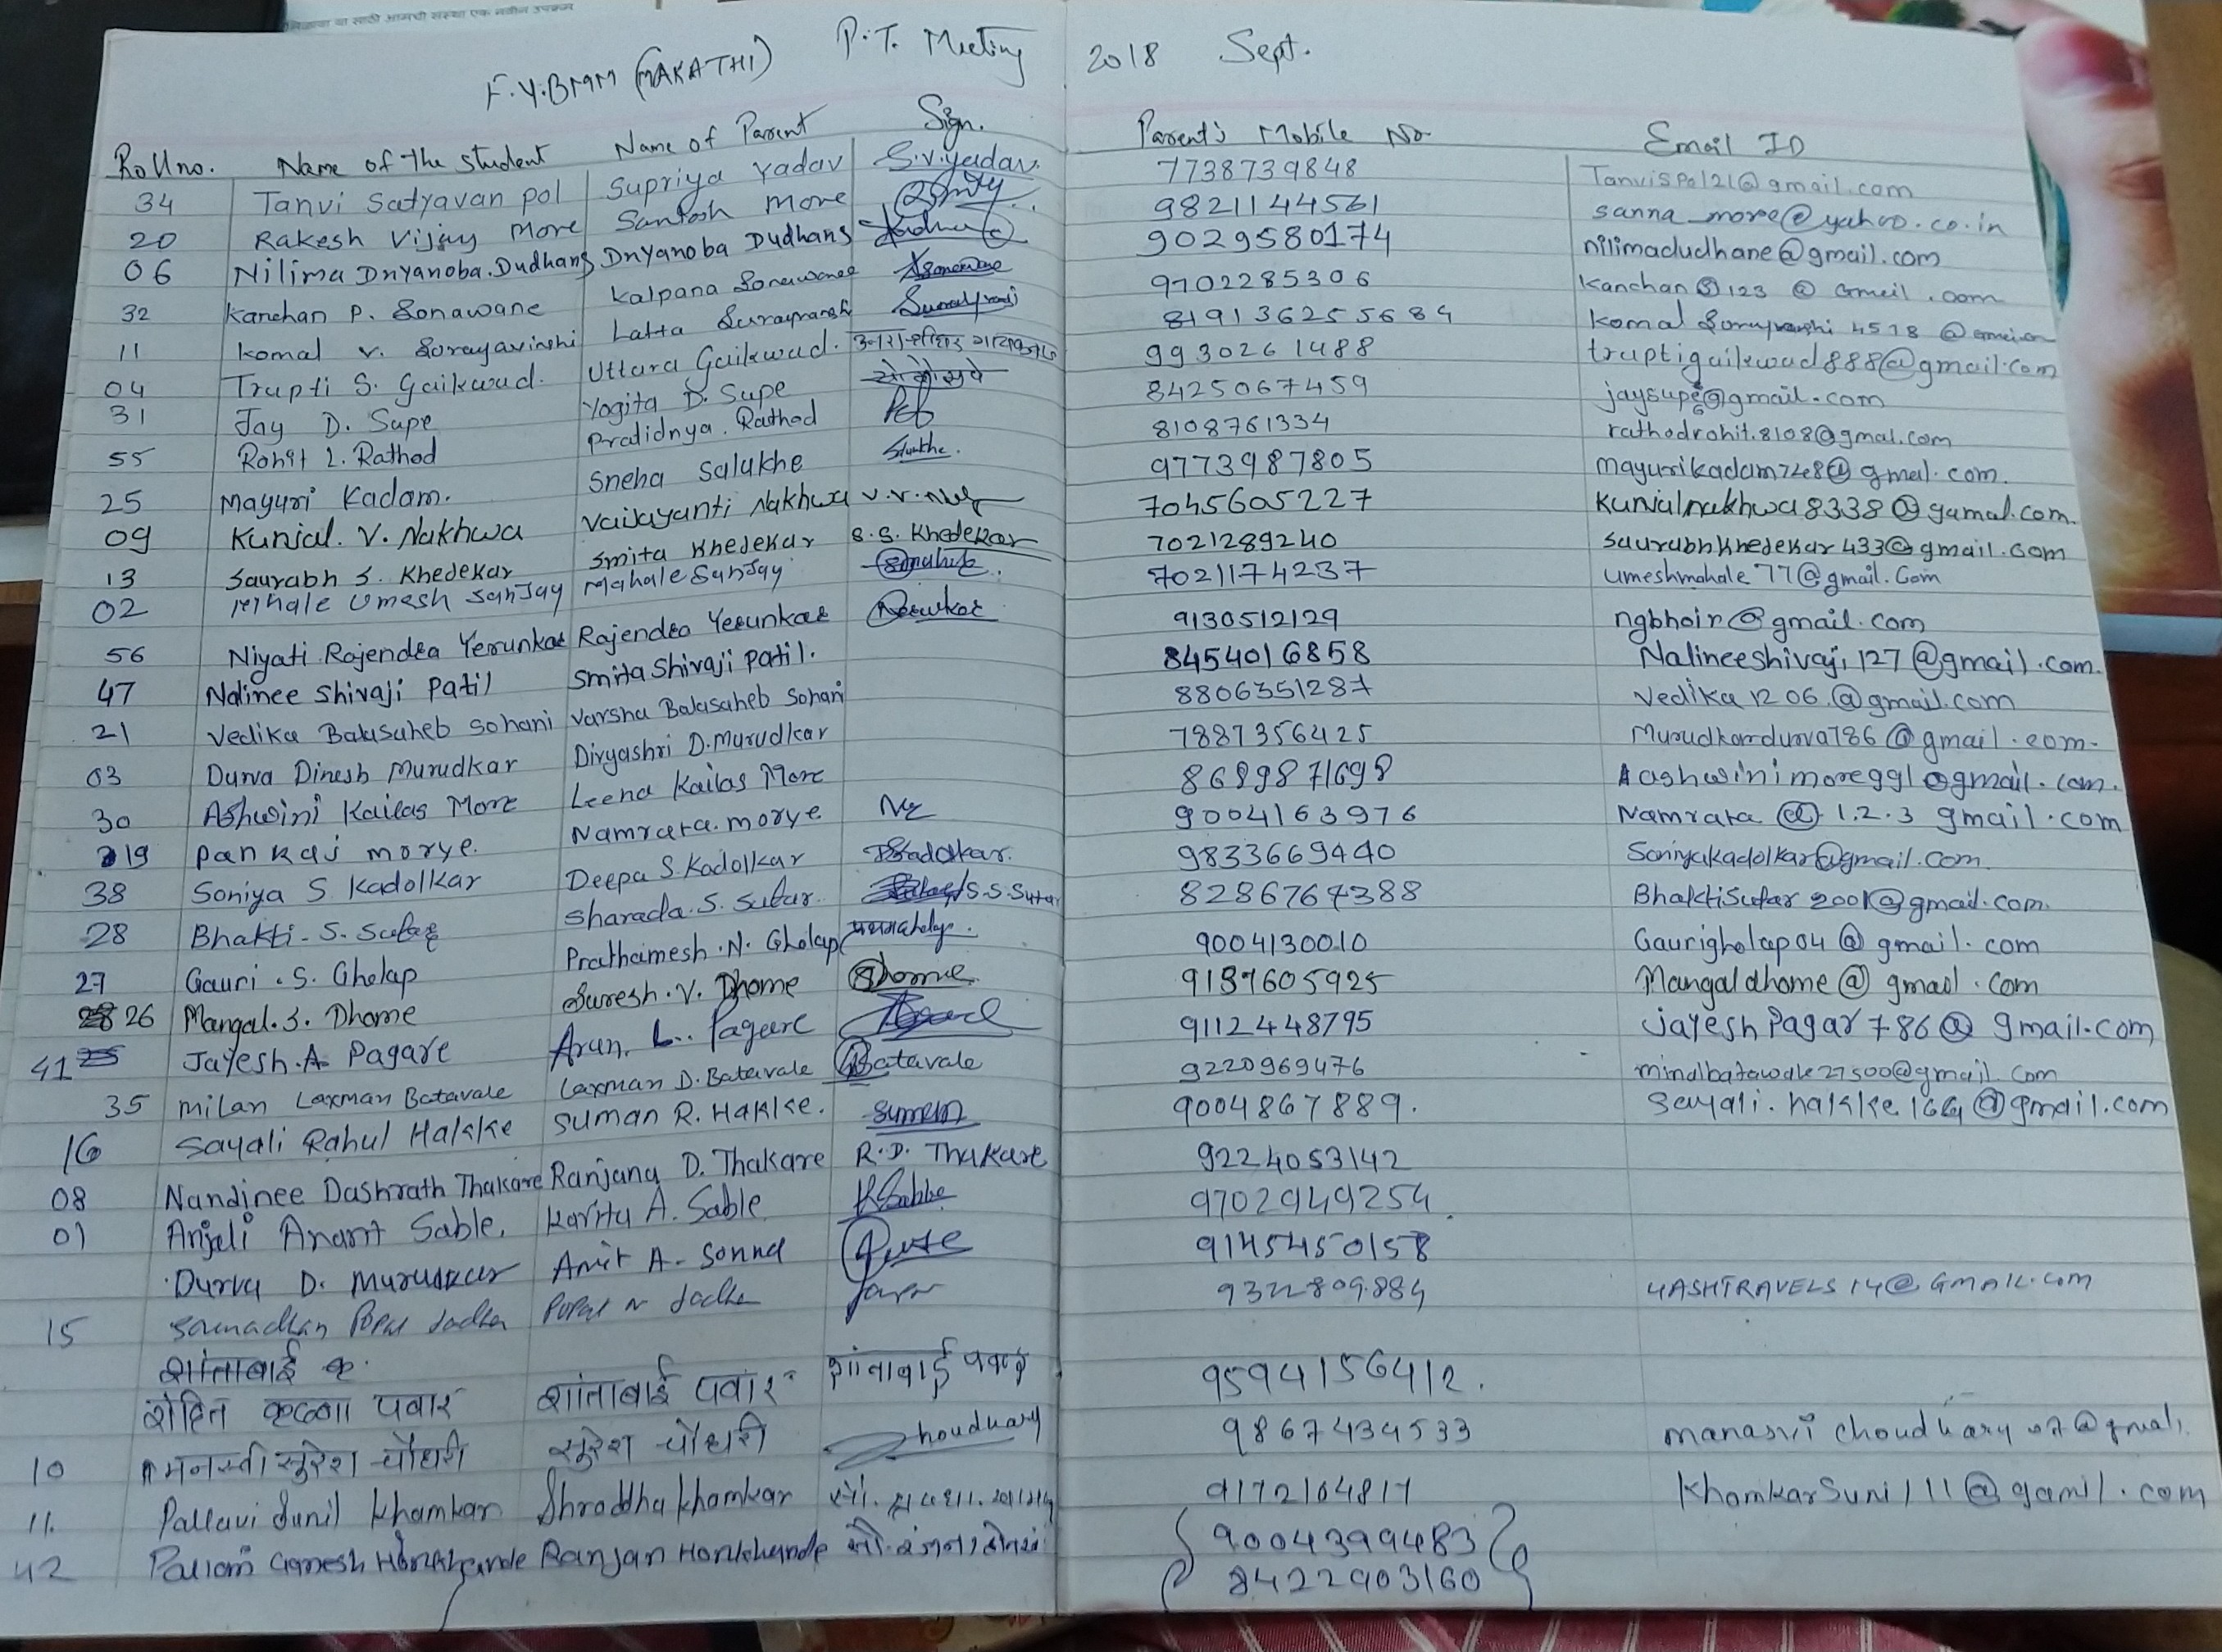 या साठी आमची संस्था एक नवीन उपक्रम
F.Y.BMM (MARATHI) P.T. Meeting 2018 Sept.
Roll no. Name of the student Name of Parent Sign. Parent's Mobile No Email ID
34 Tanvi Satyavan pol Supriya Yadav S.V.Yadav. 7738739848 Tanvispol21@gmail.com
20 Rakesh Vijay More Santosh More 9821144561 sanna_more@yahoo.co.in
06 Nilima Dnyanoba.Dudhane Dnyanoba Dudhane 9029580174 nilimadudhane@gmail.com
32 Kanchan P. Sonawane Kalpana Sonawane 9702285306 Kanchan 123 @ Gmeil .com
11 Komal v. Surayavinshi Latta Surayvansh 819136255684 Komal 4518
04 Trupti S. Gaikwad. Uttara Gaikwad. 9930261488 truptigaikwad888@gmail.com
31 Jay D. Supe Yogita D. Supe 8425067459 jaysupe6@gmail.com
55 Rohit L. Rathod Pratidnya. Rathod 8108761334 rathodrohit.8108@gmal.com
25 Mayuri Kadam. Sneha Salukhe 9773987805 mayurikadam7248@gmel.com.
09 Kunjal. V. Nakhwa Vaijayanti Nakhwa 7045605227 Kunjalnakhwa8338@gamal.com.
13 Saurabh S. Khedekar Smita Khedekar S.S. Khedekar 7021289240 saurabhkhedekar433@gmail.com
02 Mhale Umesh Sanjay Mahale Sanjay 7021174237 umeshmahale77@gmail.Com
56 Niyati Rajendra Yerunkar Rajendra Yerunkar 9130512129 ngbhoir@gmail.com
47 Nalinee Shivaji Patil Smita Shivaji Patil. 8454016858 Nalineeshivaji127@gmail.com.
21 Vedika Balasaheb Sohani Varsha Balasaheb Sohani 8806351287 Vedika 1206.@gmail.com
03 Durva Dinesh Murudkar Divyashri D.Murudkar 7887356425 Murudkardurva786@gmail.com.
30 Ashwini Kailas More Leena Kailas More 8689871698 Aashwinimore991@gmail.com.
19 Pankaj morye. Namrata.morye 9004163976 Namrata @ 1.2.3 gmail.com
38 Soniya S Kadolkar Deepa S.Kadolkar 9833669440 Soniyakadolkar@gmail.com.
28 Bhakti-S.Sutar Sharada.S.Sutar. S.S.Sutar 8286767388 BhaktiSutar2001@gmail.com.
27 Gauri .S. Gholap Prathamesh.N. Gholap 9004130010 Gaurigholap04@gmail.com
26 Mangal.S. Dhome Suresh.V. Dhome Dhome 9137605925 Mangaldhome@gmail.com
41 Jayesh.A Pagare Arun. L. Pagare 9112448795 jayeshPagar786@gmail.com
35 Milan Laxman Batavale Laxman D.Batavale Batavale 9220969476 minalbatawale27500@gmail.com
16 Sayali Rahul Hakke Suman R. Hakke. Suman 9004867889. sayali.hakke.1664@gmail.com
08 Nandinee Dashrath Thakare Ranjana D. Thakare R.D. Thakare 9224053142
01 Anjali Anant Sable. Kavita A. Sable KSable 9702949254
Durva D. Murudkar Amit A. 9145450158
15 Popat Jadhav Popat N Jadhav 9322809884 YASHTRAVELS14@GMAIL.COM
शांताबाई कृ.
रोहित कृष्णा पवार शांताबाई पवार शांताबाई पवार 9594156412.
10 मनस्वी सुरेश चौधरी सुरेश चौधरी Choudhary 9867434533 manasvi choudhary 07@gmail.
11. Pallavi Sunil Khamkar Shraddha Khamkar 9172164817 KhamkarSuni111@gamil.com
42 Ganesh Honkhande Ranjan Honkhande 9004399483
8422903160